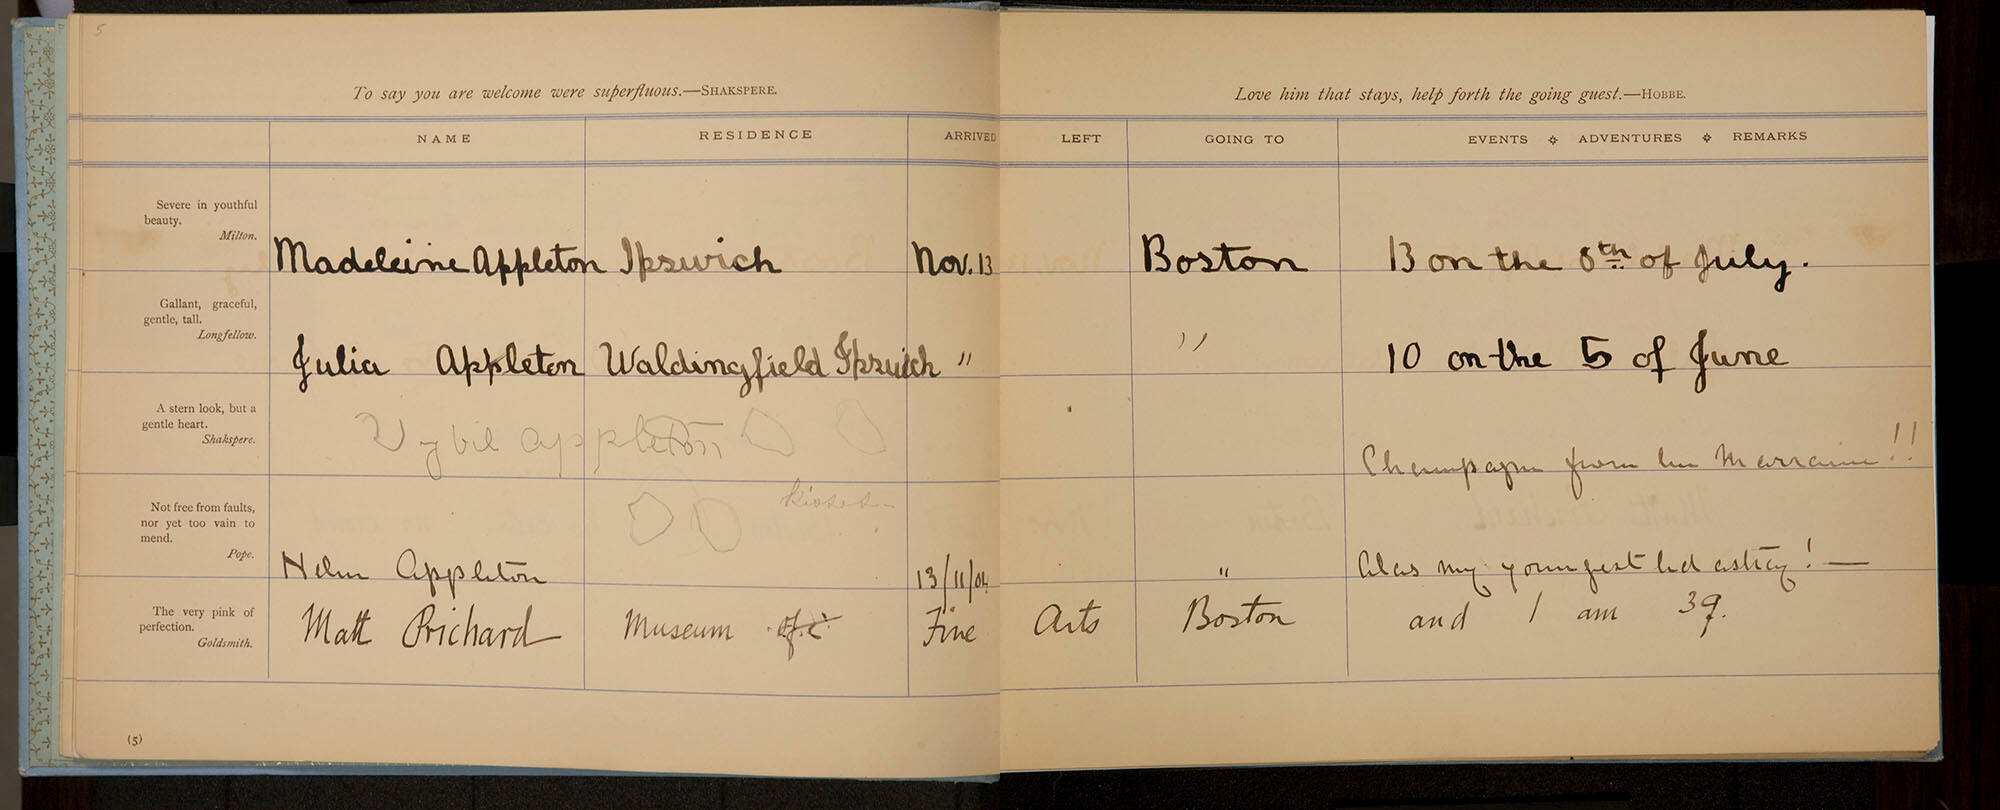 5
To say you are welcome were superfluous.—SHAKSPERE.
Love him that stays, help forth the going guest.—HOBBE.
NAME RESIDENCE ARRIVED LEFT GOING TO EVENTS ADVENTURES REMARKS
Severe in youthful
beauty.
Milton.
Madeleine Appleton Ipswich Nov. 13 Boston 13 on the 8th of July.
Gallant, graceful,
gentle, tall.
Longfellow.
Julia Appleton Waldingfield Ipswich " " 10 on the 5 of June
A stern look, but a
gentle heart.
Shakspere.
Appleton
Champagne from !!
Not free from faults,
nor yet too vain to
mend.
Pope.
kisses—
Appleton 13/11/04 " Alas my youngest !—
The very pink of
perfection.
Goldsmith.
Matt Prichard Museum of Fine Arts Boston and I am 39.
(5)